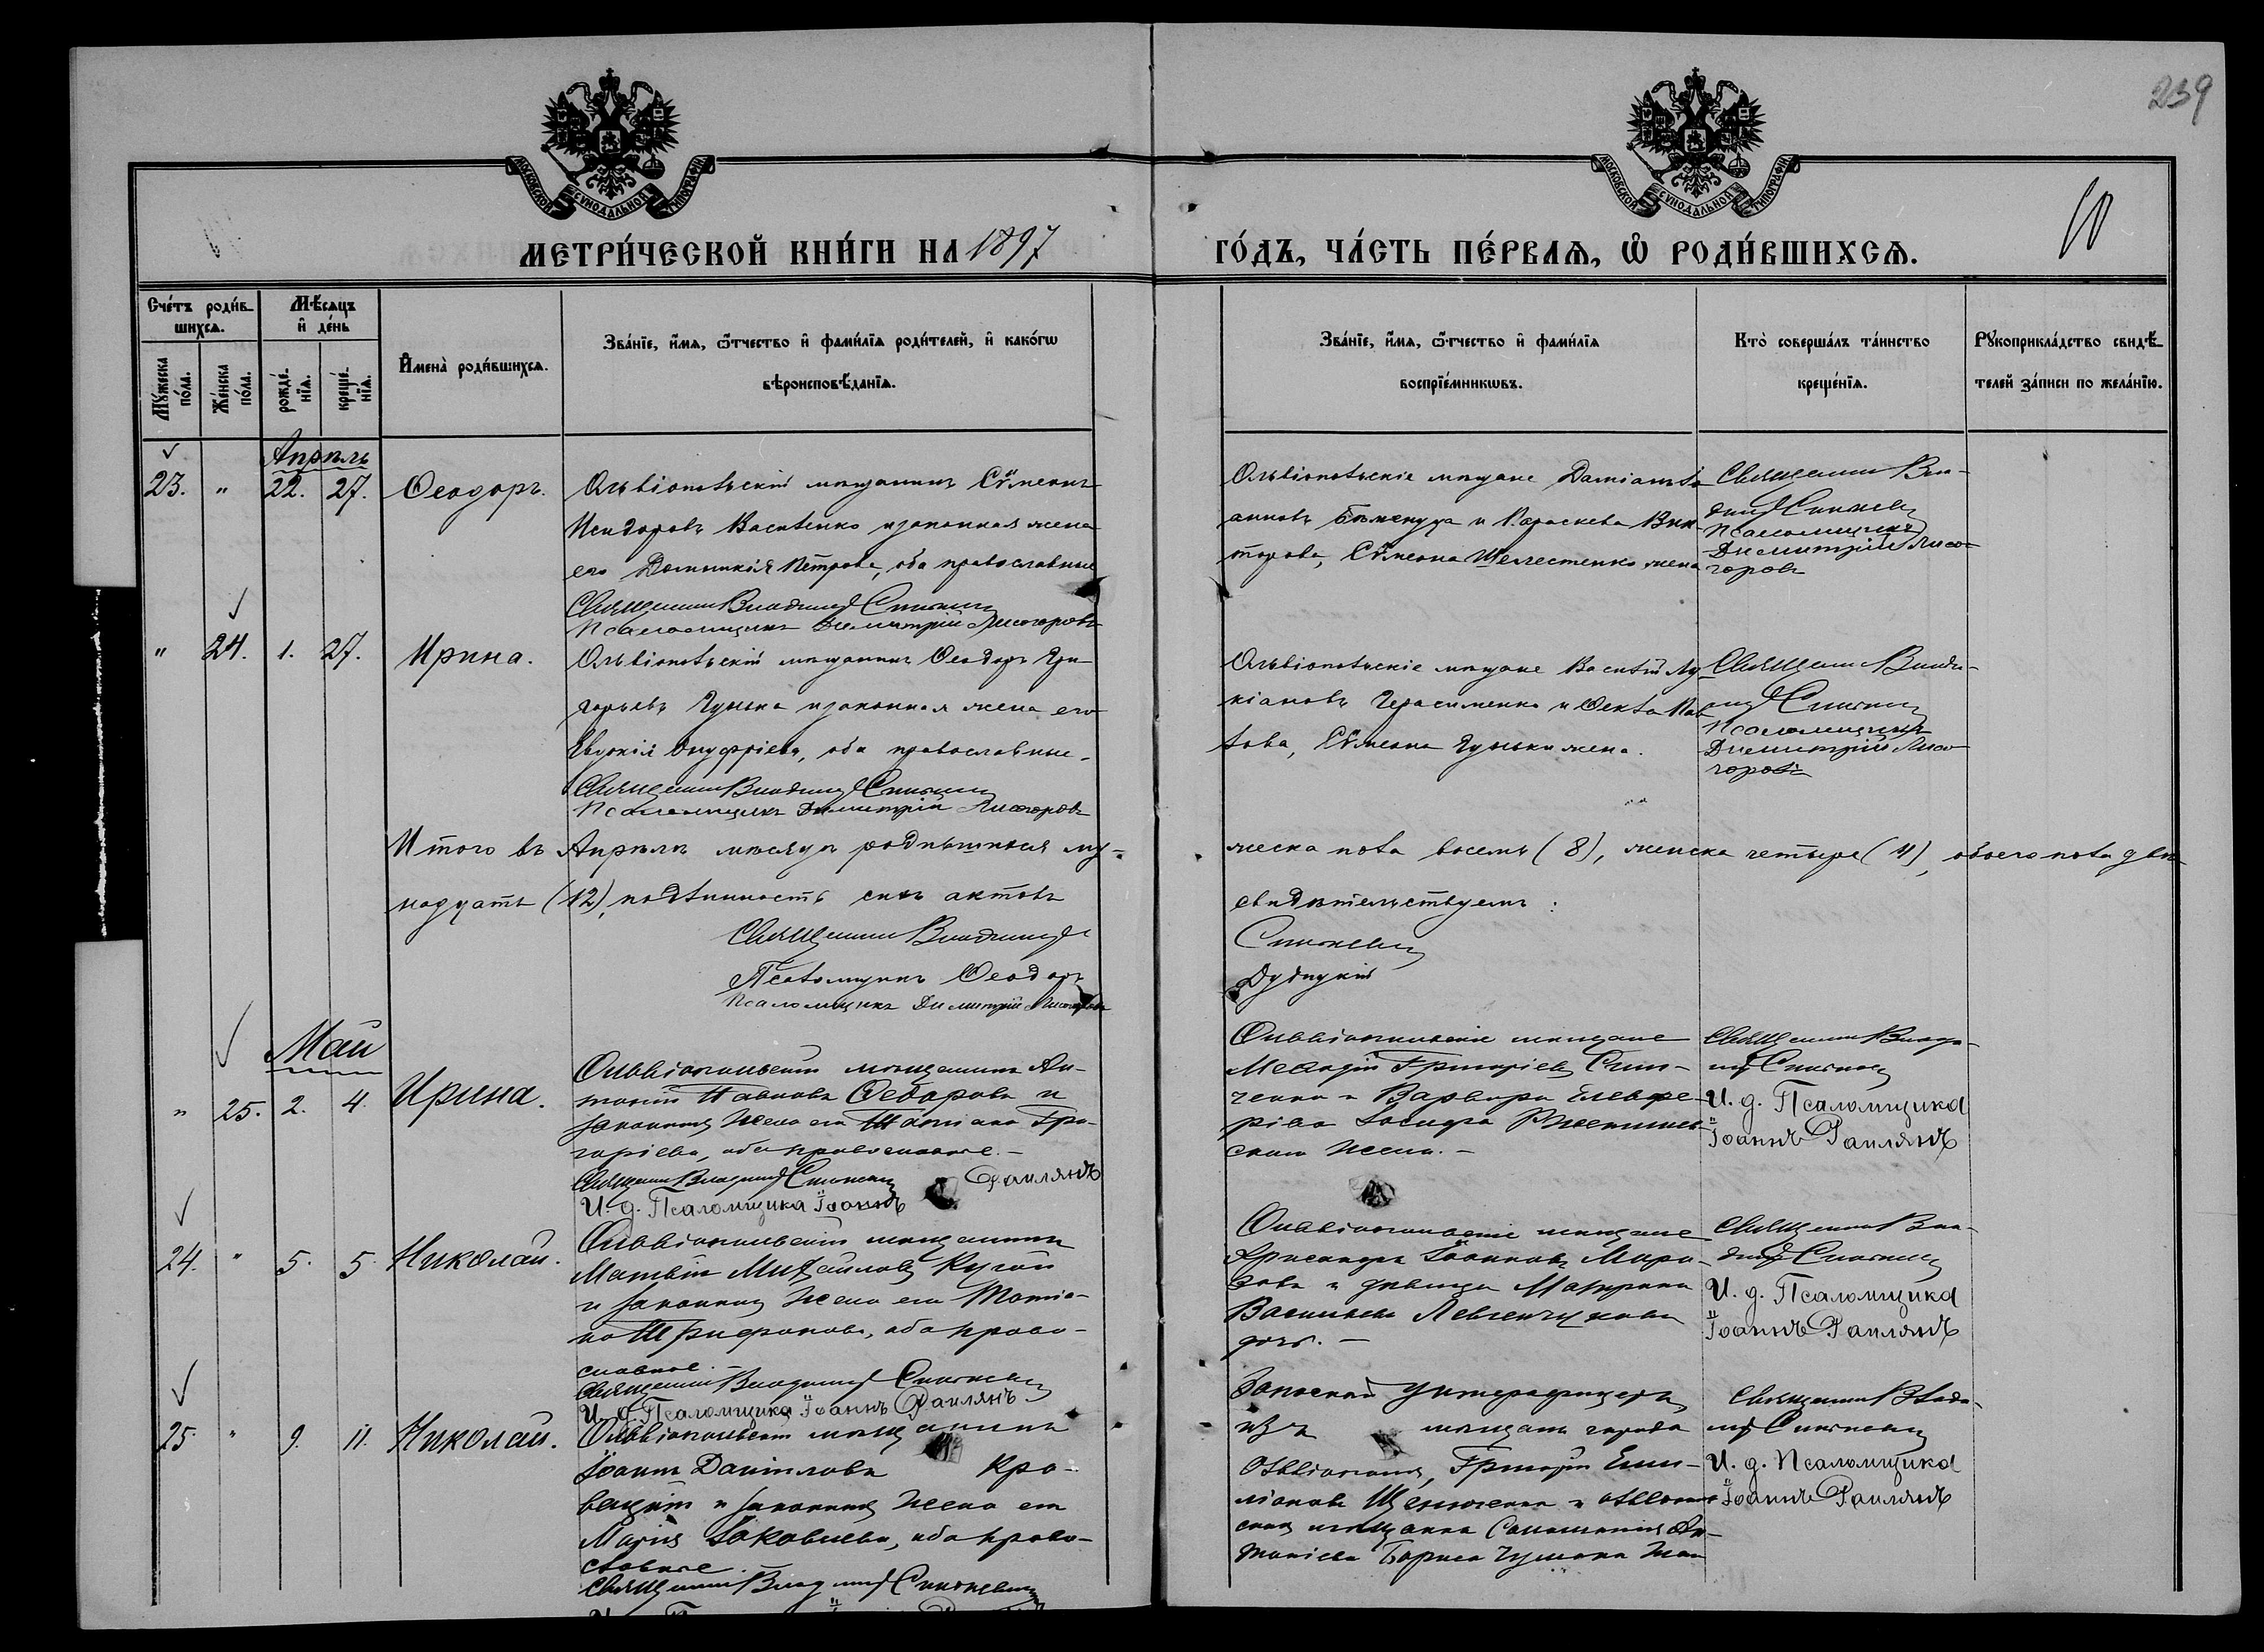 239
10
МОСКОВСКОЙ СѴНОДАЛЬНОЙ ТИПОГРАФІИ
МОСКОВСКОЙ СѴНОДАЛЬНОЙ ТИПОГРАФІИ
МЕТРИ́ЧЕСКОЙ КНИ́ГИ НА 1897 ГО́ДЪ, ЧА́СТЬ ПЕ́РВАѦ, Ѡ҆ РОДИ́ВШИХСѦ.
Сче́тъ роди́в-
шихсѧ.
Мѣ́сѧцъ
и҆ де́нь
Мꙋ́жеска по́ла.
Же́нска по́ла.
рожде́-нїѧ.
креще́-нїѧ.
И҆мена̀ роди́вшихсѧ.
Зва́нїе, и҆́мѧ, ѻ҆́тчество и҆ фами́лїѧ роди́телей, и҆ како́гѡ
вѣроисповѣ́данїѧ.
Зва́нїе, и҆́мѧ, ѻ҆́тчество и҆ фами́лїѧ
воспрїе́мникѡвъ.
Кто̀ соверша́лъ та́инство
креще́нїѧ.
Рꙋкоприкла́дство свидѣ́-
телей за́писи по жела́нїю.
Апрѣль
23. " 22. 27. Ѳеодоръ.
Ольвіопольскій мѣщанинъ Сѵмеонъ
Исидоровъ Василенко и законная жена
его Домникія Петрова, оба православные
Священникъ Владиміръ
Псаломщикъ Димитрій Лисогоровъ
Ольвіопольскіе мѣщане Даміанъ
и Параскева Вик-
торова, Сѵмеона Шелестенко жена
Священникъ Вла-
диміръ
Псаломщикъ
Димитрій Лисо-
горовъ
" 24. 1. 27. Ирина.
Ольвіопольскій мѣщанинъ Ѳеодоръ Гри-
горьевъ Гунька и законная жена его
Евдокія Онуфріева, оба православные.
Священникъ Владиміръ
Псаломщикъ Димитрій Лисогоровъ
Ольвіопольскіе мѣщане Василій Лу-
кіановъ Герасименко и Ѳекла Пав-
лова, Сѵмеона Гуньки жена.
Священникъ Влади-
міръ
Псаломщикъ
Димитрій Лисо-
горовъ
Итого въ Апрѣлѣ мѣсяцѣ родившихся му-жеска пола восемь (8), женска четыре (4), обоего пола двѣ-
надцать (12), подлинность сихъ актовъ свидѣтельствуемъ:
Священникъ Владиміръ
Псаломщикъ Ѳеодоръ Дудицкій
Псаломщикъ Димитрій Лисогоровъ
Май
" 25. 2. 4. Ирина.
Ольвіопольскій мѣщанинъ Ан-
тоній Павловъ Ѳедоровъ и
законная жена его Татіана Гри-
горіева, оба православные.-
Священникъ Владиміръ
И. д. Псаломщика Іоаннъ Раилянъ
Ольвіопольскіе мѣщане
Меѳодій Григоріевъ
и Варвара Елевѳе-
ріева
жена.-
Священникъ Влади-
міръ
И. д. Псаломщика
Іоаннъ Раилянъ
24. " 5. 5. Николай.
Ольвіопольскій мѣщанинъ
Матвѣй Михайловъ
и законная жена его Татіа-
на Трифонова, оба право-
славные.-
Священникъ Владиміръ
И. д. Псаломщика Іоаннъ Раилянъ
Ольвіопольскіе мѣщане
Іоанновъ
и дѣвица
Васильева
дочь.-
Священникъ Вла-
диміръ
И. д. Псаломщика
Іоаннъ Раилянъ
25. " 9. 11. Николай.
Ольвіопольскій мѣщанинъ
Іоаннъ Даніиловъ Кра-
вецкій и законная жена его
Марія Іаковлева, оба право-
славные.
Священникъ Владиміръ
Запасный унтеръ-офицеръ
изъ мѣщанъ города
Ольвіополя, Григорій Еми-
ліановъ и ольвіополь-
ская мѣщанка
Бориса жена
Священникъ Влади-
міръ
И. д. Псаломщика
Іоаннъ Раилянъ